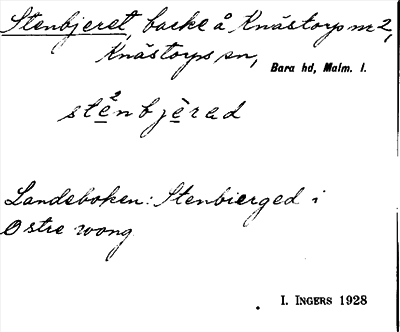 Stenbjeret, backe å Knästorps m 2,
Knästorps sn,
Bara hd, Malm. l.
ste²nbjèrad
Landeboken: Stenbierged i
Ostre wong
I. INGERS 1928